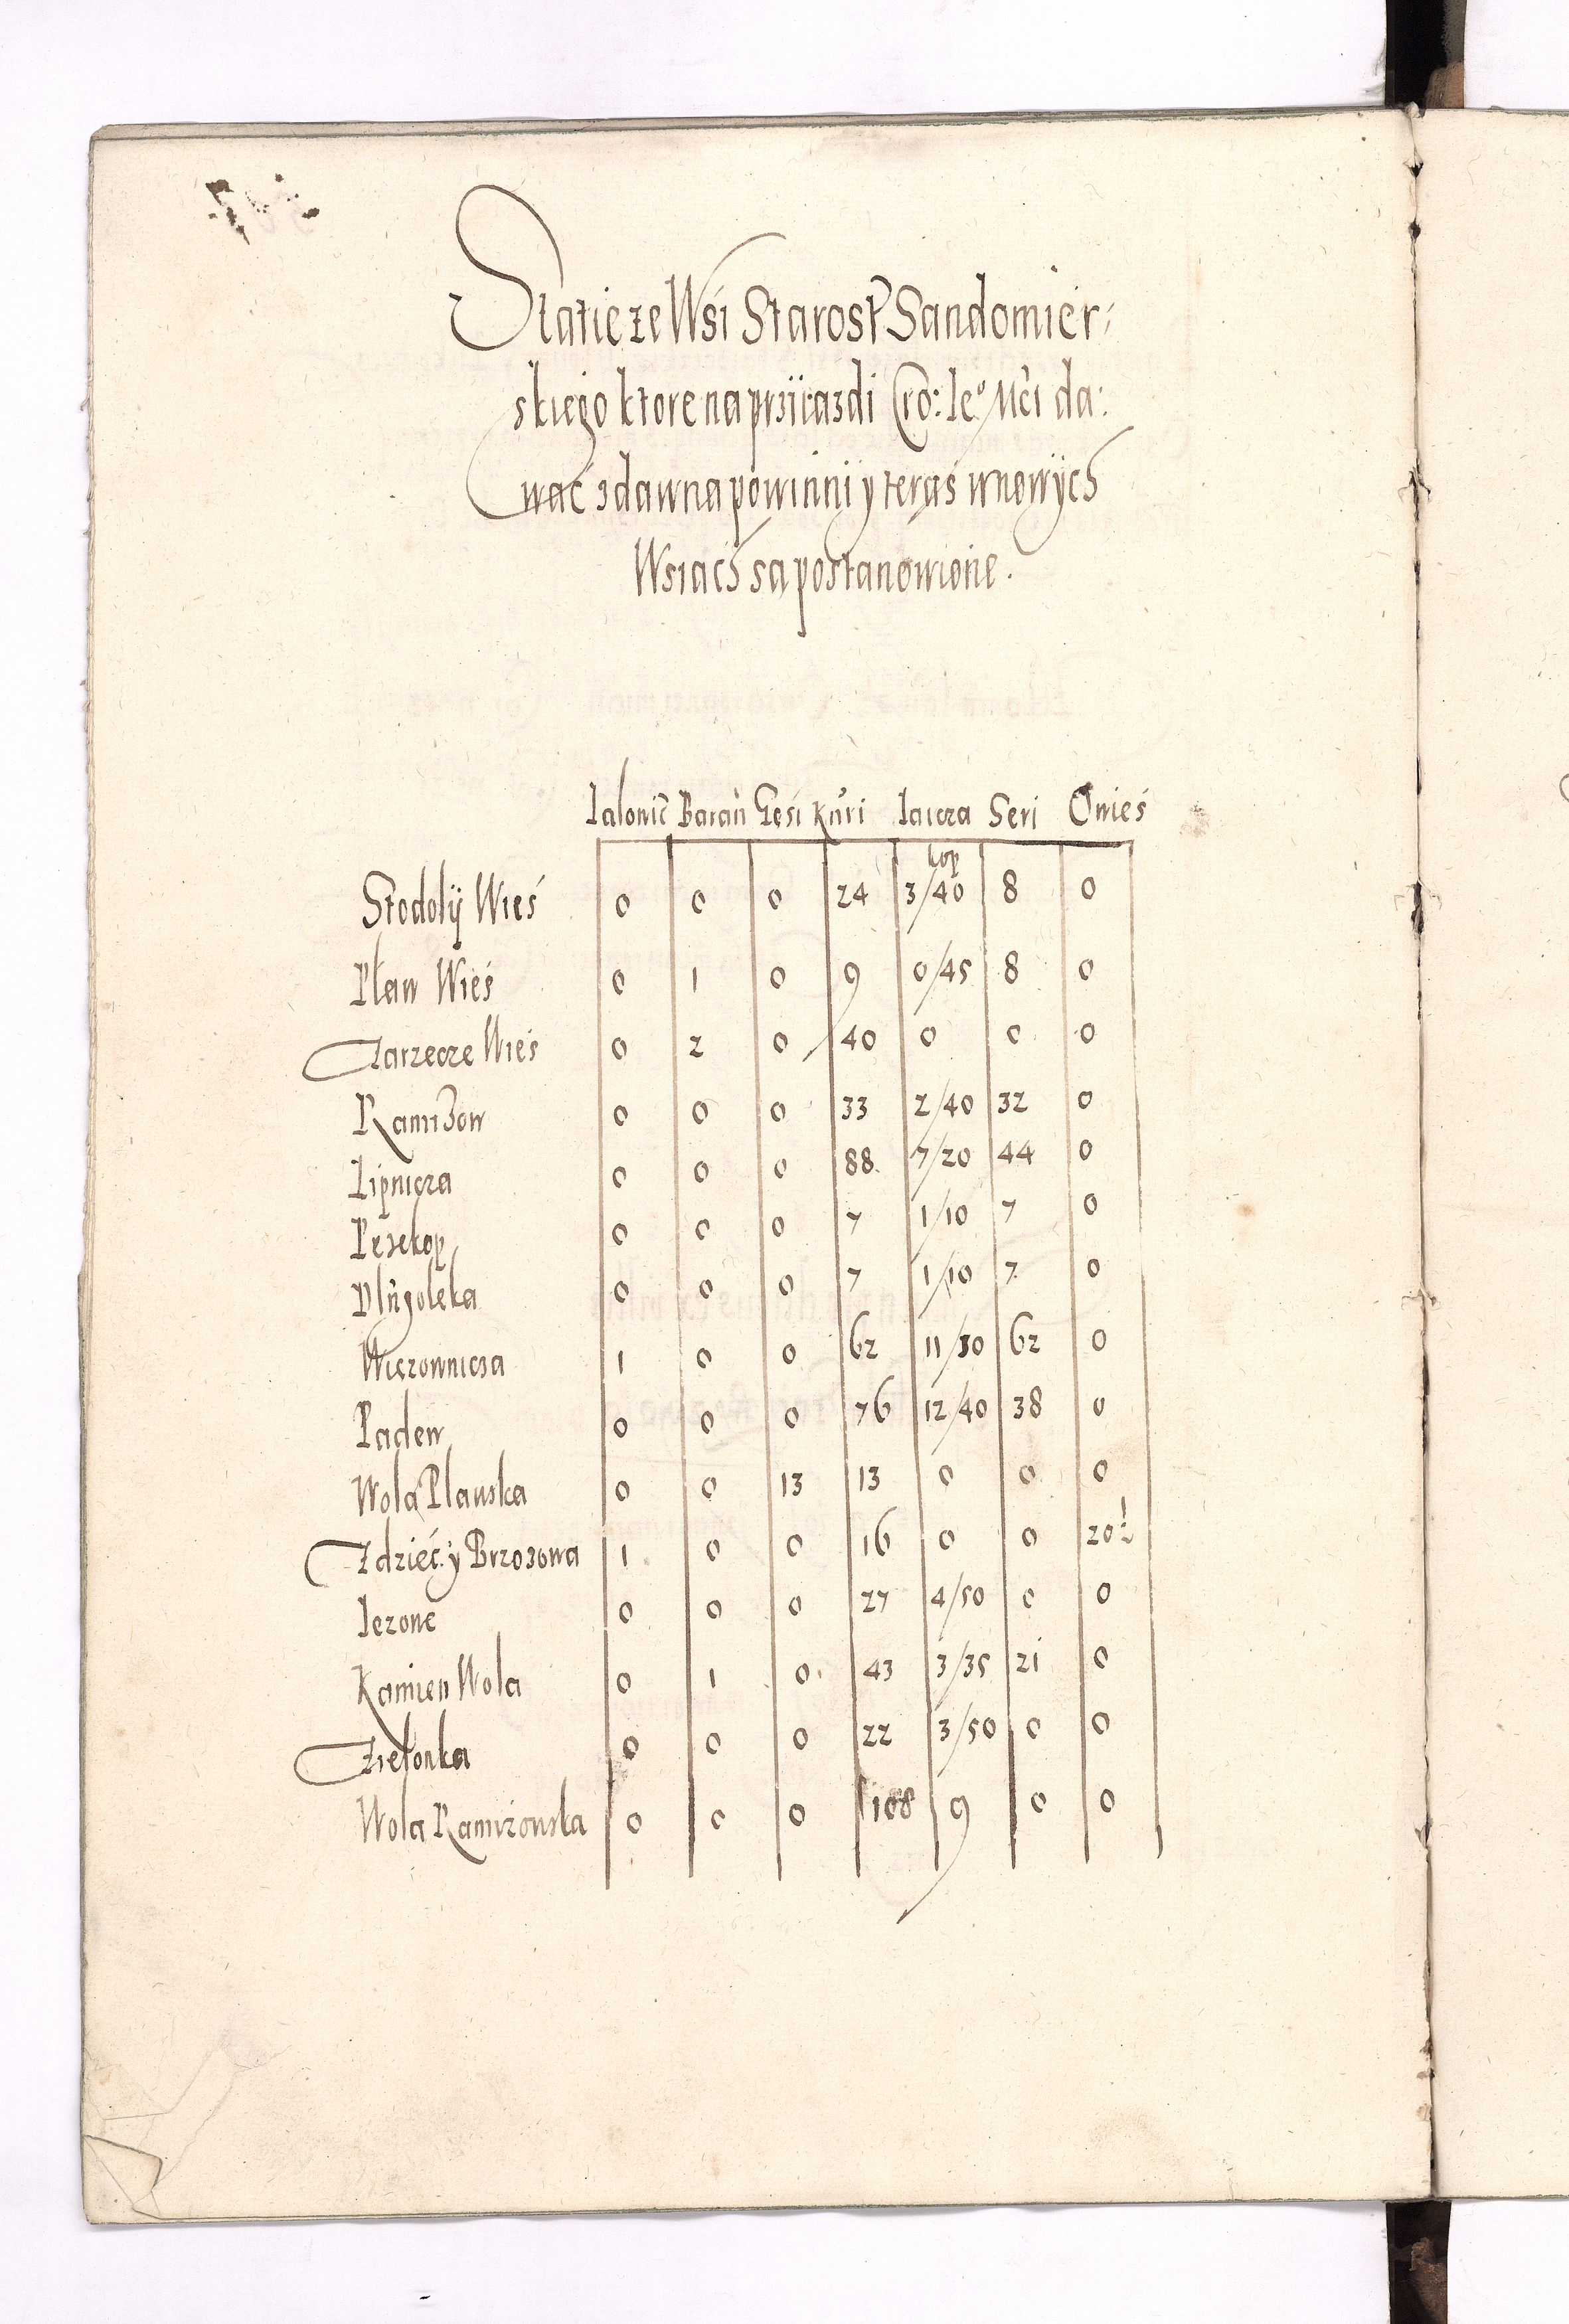 Statie ze Wsi Starost Sandomier:
skiego ktore na prziiazdi Kro: Je° Mci da:
wać zdawna powinni y teras wnowÿch
Wsiach sa postanowione.
Ialowic Baran Gęsi Kuri Iaicza Seri Owies
kop
Stodolÿ Wieś 0 0 0 24 3/40 8 0
Pław Wieś 0 1 0 9 0/45 8 0
Zarzecze Wieś 0 2 0 40 0 0 0
Ranizow 0 0 0 33 2/40 32 0
Lipnicza 0 0 0 88 7/20 44 0
Przekop 0 0 0 7 1/10 7 0
Dlugoleka 0 0 0 7 1/10 7 0
Wiązownicza 1 0 0 62 11/30 62 0
Padew 0 0 0 76 12/40 38 0
Wola Plawska 0 0 13 13 0 0 0
Zdzieć: y Brzozowa 1 0 0 16 0 0 20½
Iezowe 0 0 0 27 4/50 0 0
Kamien Wola 0 1 0 43 3/35 21 0
Zielonka 0 0 0 22 3/50 0 0
Wola Ranizowska 0 0 0 108 9 0 0